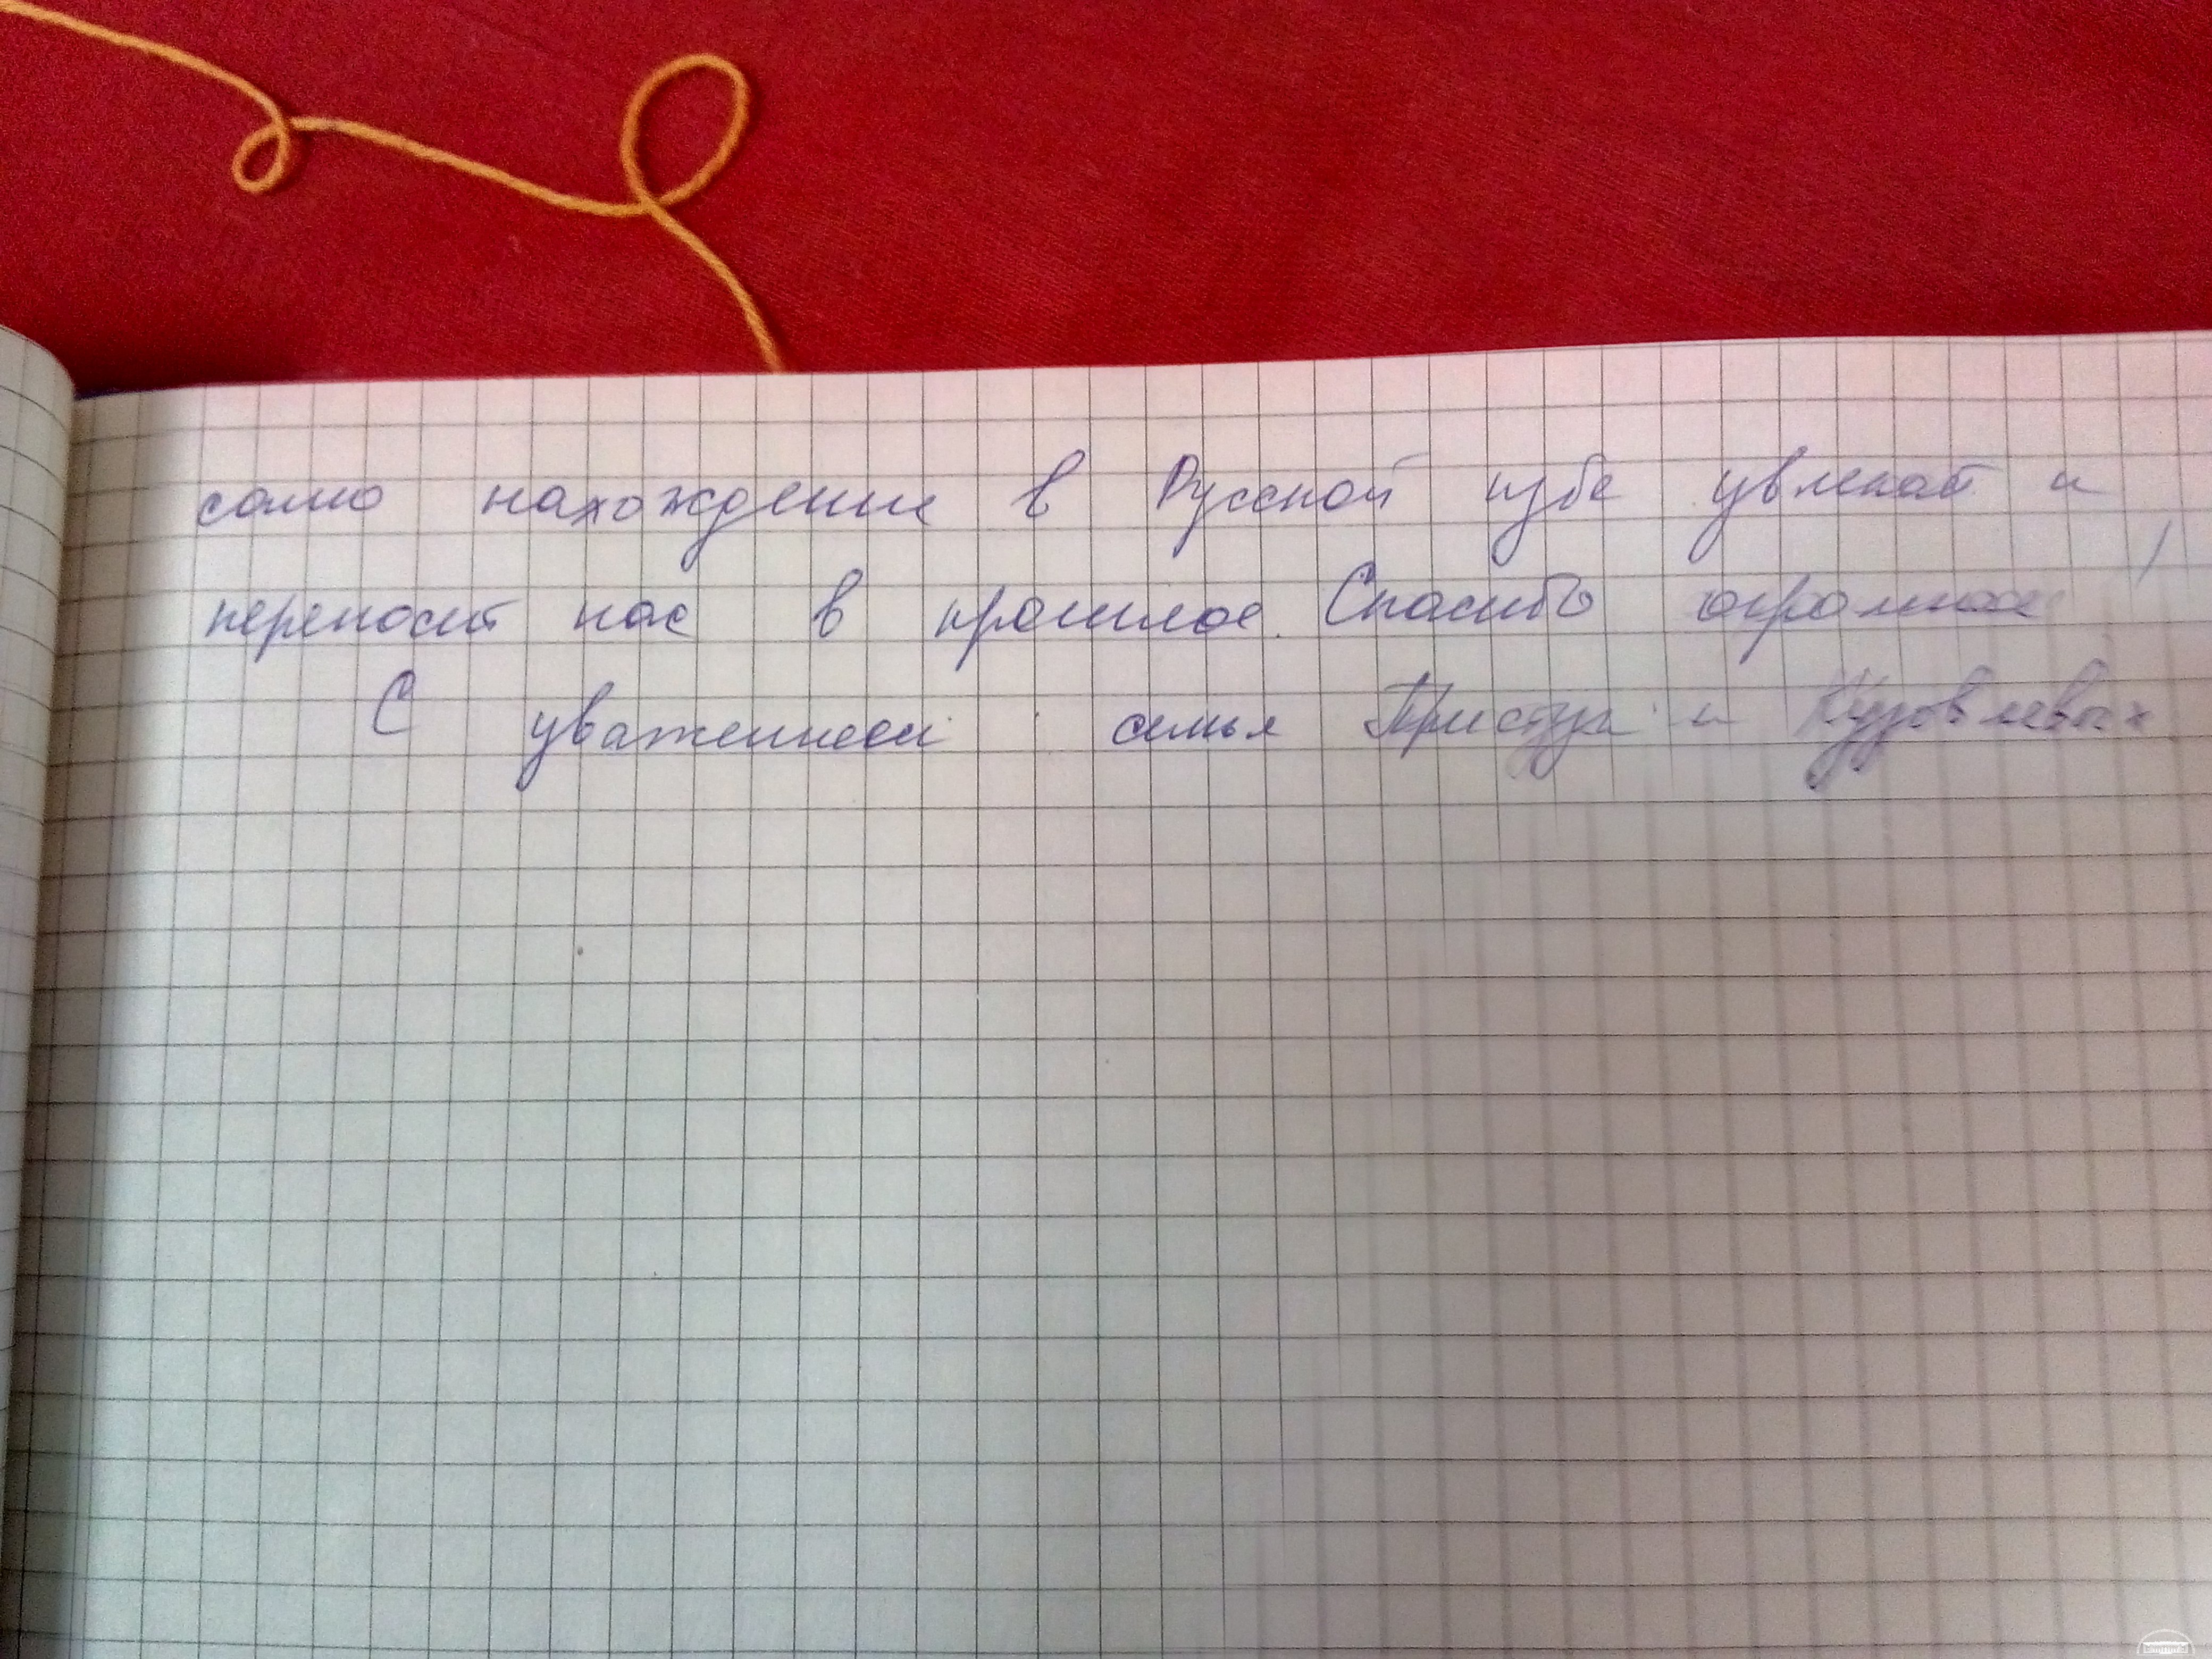 само нахождение в Русской избе увлекат и
переносит нас в прошлое. Спасибо огромное!
С уважением семья и Кузовлевых